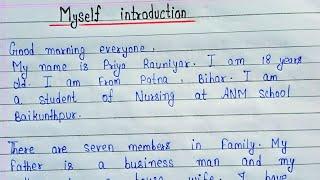 Myself introduction
Good morning everyone.
My name is Priya Rauniyar. I am 18 years
old. I am From Patna, Bihar. I am
a student of Nursing at ANM school
Baikunthpur.
There are seven members in Family. My
Father is a business man and my
house wife. I have